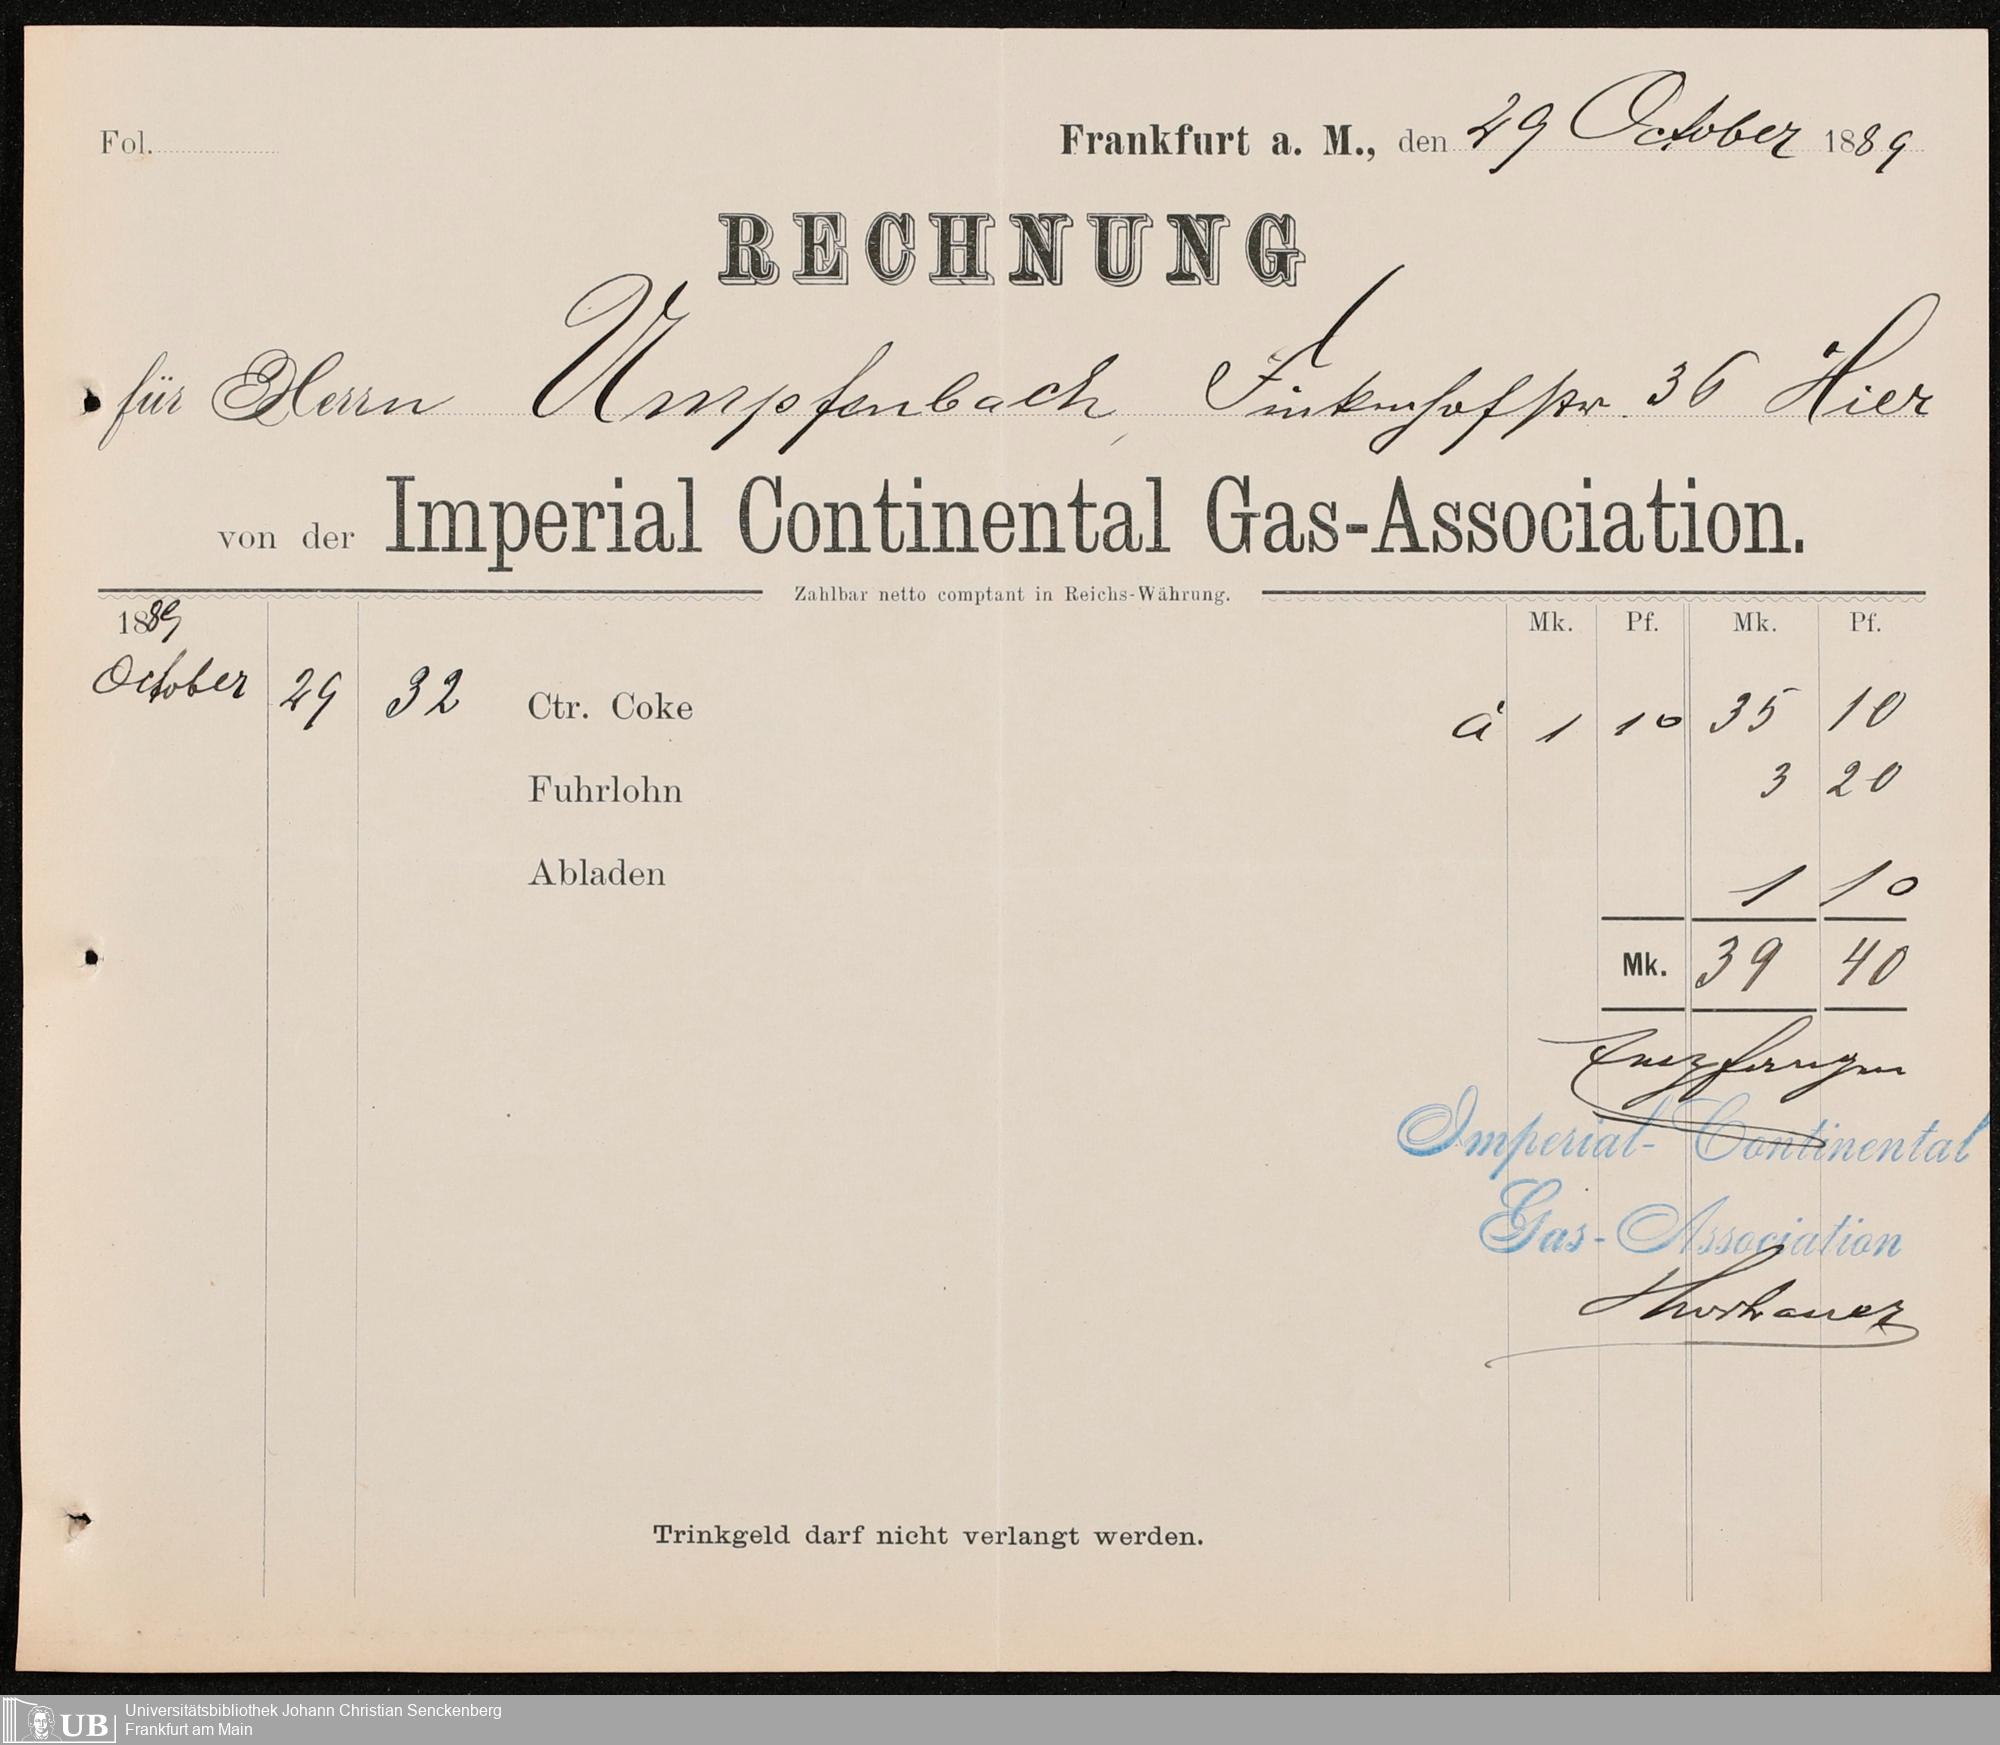 Fol.
Frankfurt a. M., den 29 October 1889
RECHNUNG
für Herrn Umpfenbach, Finkenhofstr. 36 Hier
von der Imperial Continental Gas-Association.
Zahlbar netto comptant in Reichs-Währung.
1889 Mk. Pf. Mk. Pf.
October 29 32 Ctr. Coke à 1 10 35 10
Fuhrlohn 3 20
Abladen 1 10
Mk. 39 40
Empfangen
Imperial-Continental
Gas-Association
Trinkgeld darf nicht verlangt werden.
UB Universitätsbibliothek Johann Christian Senckenberg
Frankfurt am Main